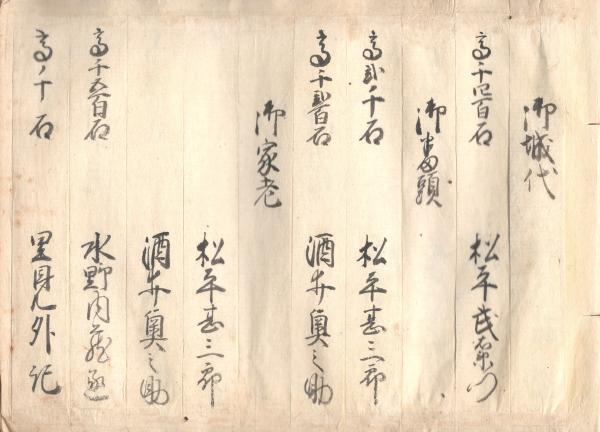 御城代
高千四百石 松平武右衛門
御番頭
高弐千石 松平甚三郎
高千弐百石 酒井奥之助
御家老
松平甚三郎
酒井奥之助
高千五百石 水野内蔵丞
高 千石 里見外記